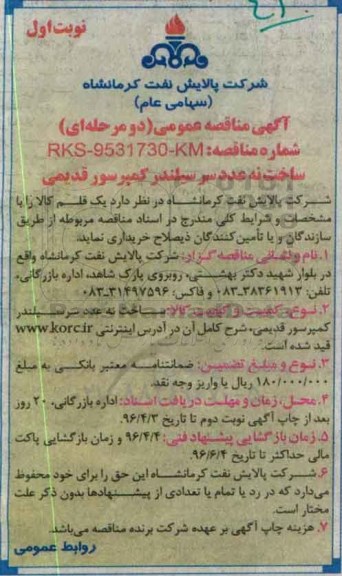 نوبت اول
شرکت پالایش نفت کرمانشاه
(سهامی عام)
آگهی مناقصه عمومی (دو مرحله‌ای)
شماره مناقصه: RKS-9531730-KM
ساخت نه عدد سر سیلندر کمپرسور قدیمی
شرکت پالایش نفت کرمانشاه در نظر دارد یک قلم کالا را با
مشخصات و شرایط کلی مندرج در اسناد مناقصه مربوطه از طریق
سازندگان و یا تأمین کنندگان ذیصلاح خریداری نماید.
۱. نام و نشانی مناقصه گزار: شرکت پالایش نفت کرمانشاه واقع
در بلوار شهید دکتر بهشتی، روبروی پارک شاهد، اداره بازرگانی،
تلفن: ۳۸۳۶۱۹۱۳-۰۸۳ و فاکس: ۳۱۴۹۷۵۹۶-۰۸۳
۲. نوع، کمیت و کیفیت کالا: ساخت نه عدد سرسیلندر
کمپرسور قدیمی، شرح کامل آن در آدرس اینترنتی www.korc.ir
قید شده است.
۳. نوع و مبلغ تضمین: ضمانتنامه معتبر بانکی به مبلغ
۱۸۰/۰۰۰/۰۰۰ ریال یا واریز وجه نقد.
۴. محل، زمان و مهلت دریافت اسناد: اداره بازرگانی، ۲۰ روز
بعد از چاپ آگهی نوبت دوم تا تاریخ ۹۶/۴/۳.
۵. زمان بازگشایی پیشنهاد فنی: ۹۶/۴/۴ و زمان بازگشایی پاکت
مالی حداکثر تا تاریخ ۹۶/۶/۴.
۶. شرکت پالایش نفت کرمانشاه این حق را برای خود محفوظ
می‌دارد که در رد یا تمام یا تعدادی از پیشنهادها بدون ذکر علت
مختار است.
۷. هزینه چاپ آگهی بر عهده شرکت برنده مناقصه می‌باشد.
روابط عمومی